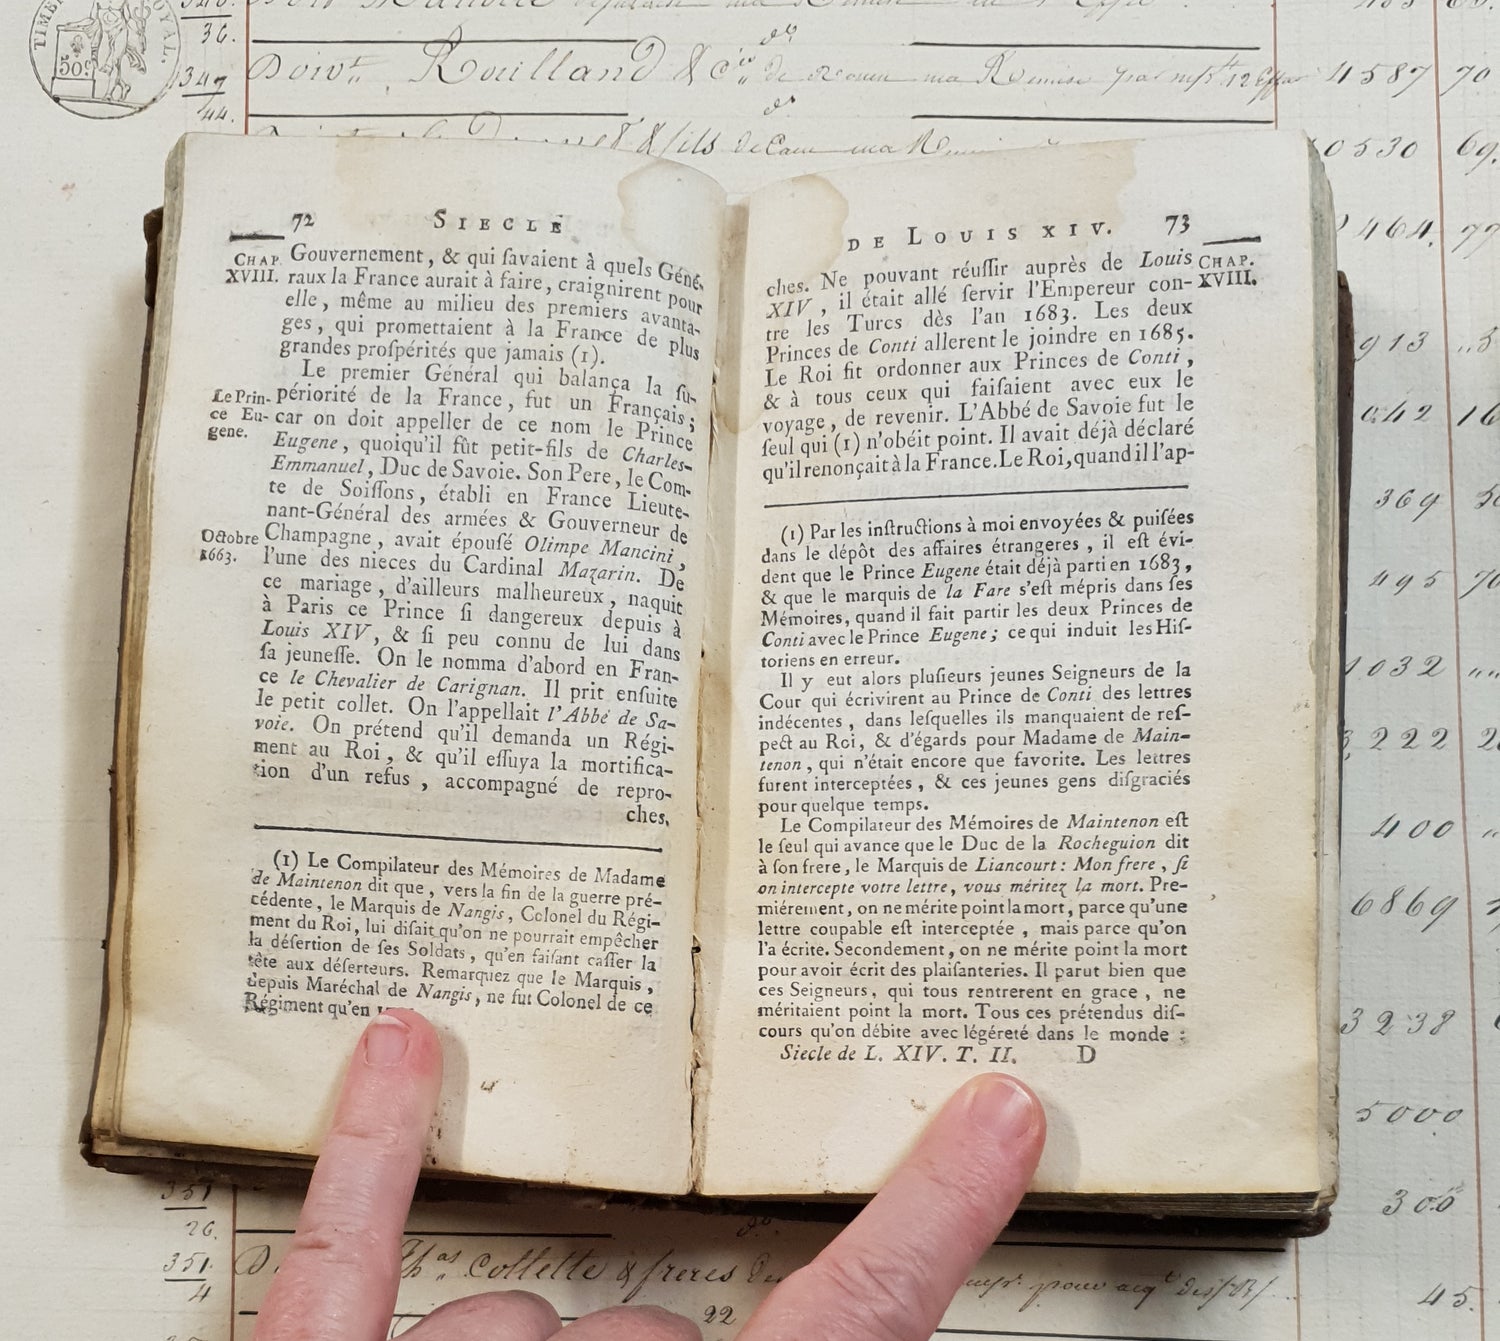 36.
349
44.
Doivt Rouilland & Cie de Rouen ma Remise 4587 70
& fils de Caen ma 10530 69.
464. 77
913
942 16
369
495
1032
3222
400
6869
3238
5000
300
45.
72 SIECLE
CHAP. XVIII.
Gouvernement, & qui ſavaient à quels Géné-
raux la France aurait à faire, craignirent pour
elle, même au milieu des premiers avanta-
ges, qui promettaient à la France de plus
grandes proſpérités que jamais (1).
Le premier Général qui balança la ſu-
Le Prin-
ce Eu-
gene.
périorité de la France, fut un Français;
car on doit appeller de ce nom le Prince
Eugene, quoiqu'il fût petit-fils de Charles-
Emmanuel, Duc de Savoie. Son Pere, le Com-
te de Soiſſons, établi en France Lieute-
nant-Général des armées & Gouverneur de
Octobre
1663.
Champagne, avait épouſé Olimpe Mancini,
l'une des nieces du Cardinal Mazarin. De
ce mariage, d'ailleurs malheureux, naquit
à Paris ce Prince ſi dangereux depuis à
Louis XIV, & ſi peu connu de lui dans
ſa jeuneſſe. On le nomma d'abord en Fran-
ce le Chevalier de Carignan. Il prit enſuite
le petit collet. On l'appellait l'Abbé de Sa-
voie. On prétend qu'il demanda un Régi-
ment au Roi, & qu'il eſſuya la mortifica-
tion d'un refus, accompagné de repro-
ches.
(1) Le Compilateur des Mémoires de Madame
de Maintenon dit que, vers la fin de la guerre pré-
cédente, le Marquis de Nangis, Colonel du Régi-
ment du Roi, lui diſait qu'on ne pourrait empêcher
la déſertion de ſes Soldats, qu'en faiſant caſſer la
tête aux déſerteurs. Remarquez que le Marquis,
depuis Maréchal de Nangis, ne fut Colonel de ce
Régiment qu'en
DE LOUIS XIV. 73
CHAP.
XVIII.
ches. Ne pouvant réuſſir auprès de Louis
XIV, il était allé ſervir l'Empereur con-
tre les Turcs dès l'an 1683. Les deux
Princes de Conti allerent le joindre en 1685.
Le Roi fit ordonner aux Princes de Conti,
& à tous ceux qui faiſaient avec eux le
voyage, de revenir. L'Abbé de Savoie fut le
ſeul qui (1) n'obéit point. Il avait déjà déclaré
qu'il renonçait à la France. Le Roi, quand il l'ap-
(1) Par les inſtructions à moi envoyées & puiſées
dans le dépôt des affaires étrangeres, il eſt évi-
dent que le Prince Eugene était déjà parti en 1683,
& que le marquis de la Fare s'eſt mépris dans ſes
Mémoires, quand il fait partir les deux Princes de
Conti avec le Prince Eugene; ce qui induit les Hiſ-
toriens en erreur.
Il y eut alors pluſieurs jeunes Seigneurs de la
Cour qui écrivirent au Prince de Conti des lettres
indécentes, dans leſquelles ils manquaient de reſ-
pect au Roi, & d'égards pour Madame de Main-
tenon, qui n'était encore que favorite. Les lettres
furent interceptées, & ces jeunes gens diſgraciés
pour quelque temps.
Le Compilateur des Mémoires de Maintenon eſt
le ſeul qui avance que le Duc de la Rocheguion dit
à ſon frere, le Marquis de Liancourt: Mon frere, ſi
on intercepte votre lettre, vous méritez la mort. Pre-
miérement, on ne mérite point la mort, parce qu'une
lettre coupable eſt interceptée, mais parce qu'on
l'a écrite. Secondement, on ne mérite point la mort
pour avoir écrit des plaiſanteries. Il parut bien que
ces Seigneurs, qui tous rentrerent en grace, ne
méritaient point la mort. Tous ces prétendus diſ-
cours qu'on débite avec légéreté dans le monde:
Siecle de L. XIV. T. II. D
351
26.
351.
4
Thas Collette & freres
22